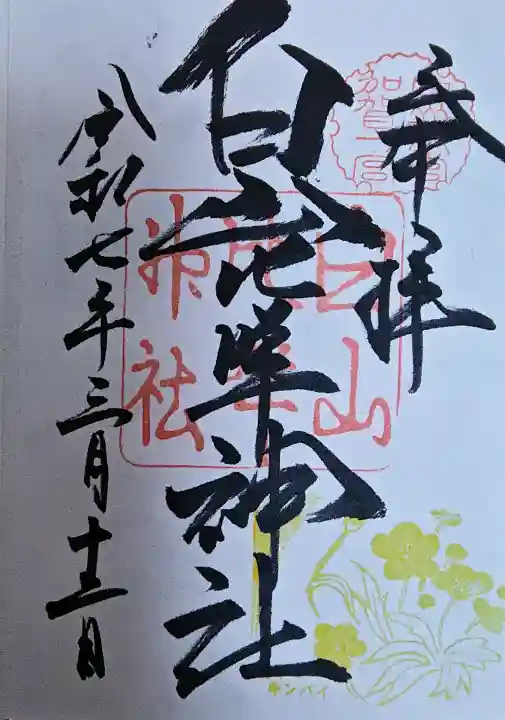 奉拝
白山比咩神社
令和七年三月十三日
白山
比咩
神社
キンバイ